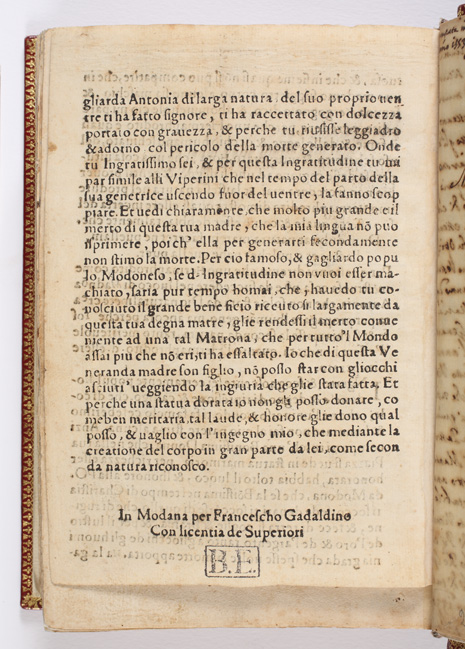 gliarda Antonia di larga natura del suo proprio uen
tre ti ha fatto signore, ti ha raccettato con dolcezza
portato con grauezza, & perche tu riuscisse leggiadro
& adorno col pericolo della morte generato. Onde
tu Ingratissimo sei, & per questa Ingratitudine tu mi
par simile alli Viperini che nel tempo del parto della
sua genetrice uscendo fuor del uentre, la fanno scop
piare. Et uedi chiaramente, che molto piu grande e il
merto di questa tua madre, che la mia lingua nõ puo
isprimere, poi ch' ella per generarti fecondamente
non stimo la morte. Per cio famoso, & gagliardo popu
lo Modoneso, se d' Ingratitudine non vuoi esser ma
chiato, saria pur tempo homai, che, havedo tu co
nosciuto il grande beneficio riceuto si largamente da
questa tua degna matre, glie rendessi il merto conue
niente ad una tal Matrona, che per tutto'l Mondo
assai piu che nõ eri, ti ha essaltato. Io che di questa Ve
neranda madre son figlio, nõ posso star con gliocchi
asciuti ueggiendo la ingiuria che glie stata fatta. Et
perche una statua dorata io non gli posso donare, co
me ben meritaria, tal laude, & honore glie dono qual
posso, & uaglio con l'ingegno mio, che mediante la
creatione del corpo in gran parte da lei, come secon
da natura riconosco.
In Modana per Francescho Gadaldino
Con licentia de Superiori
B.E.